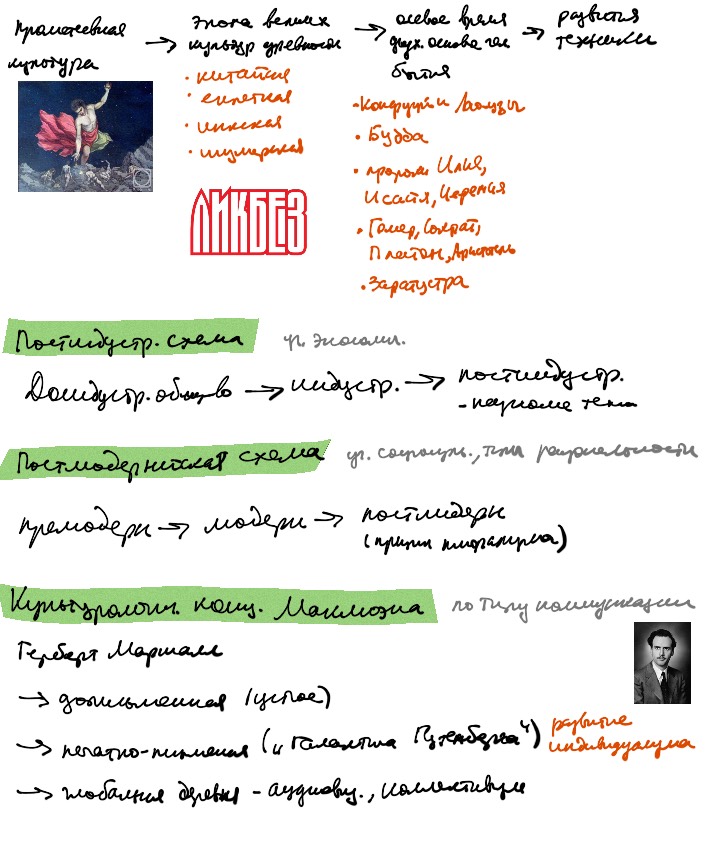 Прометеевная культура → эпоха великих культур древности → осевое время духх. основа чел. бытия → развития техники
• китайская
• египетская
• инкская
• шумерская
ЛИКБЕЗ
• Конфуций и Лаоцзы
• Будда
• пророки Илия,
Исайя, Иеремия
• Гомер, Сократ,
Платон, Аристотель
• Заратустра
Постиндустр. схема
ур. экономи.
Доиндустр. общество → индустр. → постиндустр.
Постмодернистская схема
ур. социокульт., типы рациональности
премодерн → модерн → постмодерн
(принцип плюрализма)
Культурологич. конц. Маклюэна
по типу коммуникации
Герберт Маршалл
→ дописьменная (устное)
→ печатно-письменная („Галактика Гутенберга“)
развитие
индивидуализма
→ глобальная деревня - аудиовиз., коллективизм